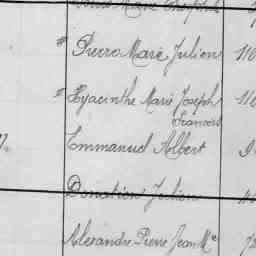 " Pierre Marie Julien 110
" Hyacinthe Marie Joseph 110
François
Emmanuel Albert
Donatien Julien
Alexandre Pierre Jean Mie